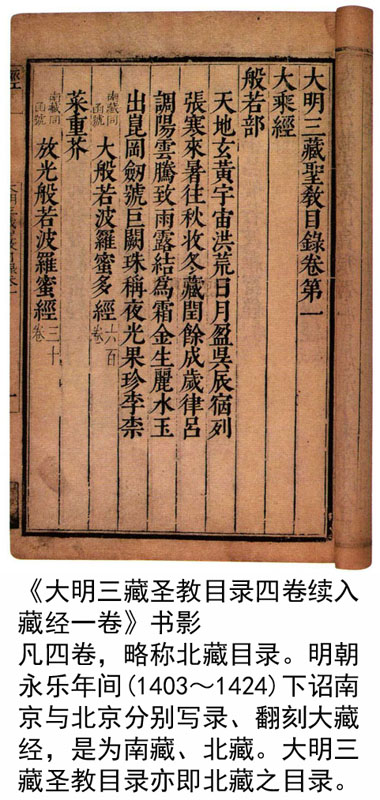 大明三藏聖教目錄卷第一
大乘經
般若部
天地玄黃宇宙洪荒日月盈昃辰宿列
張寒來暑往秋收冬藏閏餘成歲律呂
調陽雲騰致雨露結爲霜金生麗水玉
出崑岡劒號巨闕珠稱夜光果珍李柰
南藏同函號 大般若波羅蜜多經 六百卷
菜重芥
南藏同函號 放光般若波羅蜜經 三十卷
《大明三藏圣教目录四卷续入
藏经一卷》书影
凡四卷，略称北藏目录。明朝
永乐年间(1403～1424)下诏南
京与北京分别写录、翻刻大藏
经，是为南藏、北藏。大明三
藏圣教目录亦即北藏之目录。